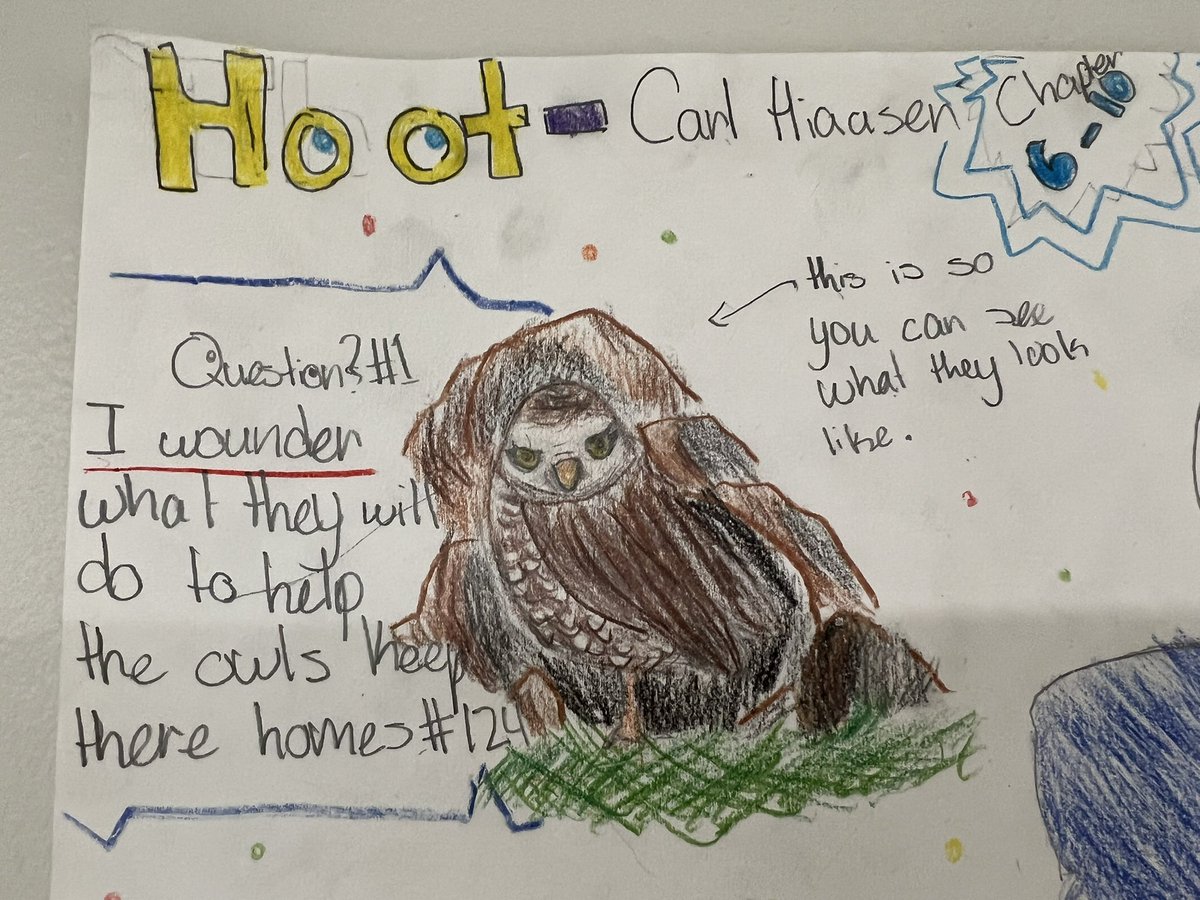 Hoot - Carl Hiaasen Chapter
6 - 10
this is so
you can see
what they look
like.
Question? #1
I wounder
what they will
do to help
the owls keep
there homes. #124